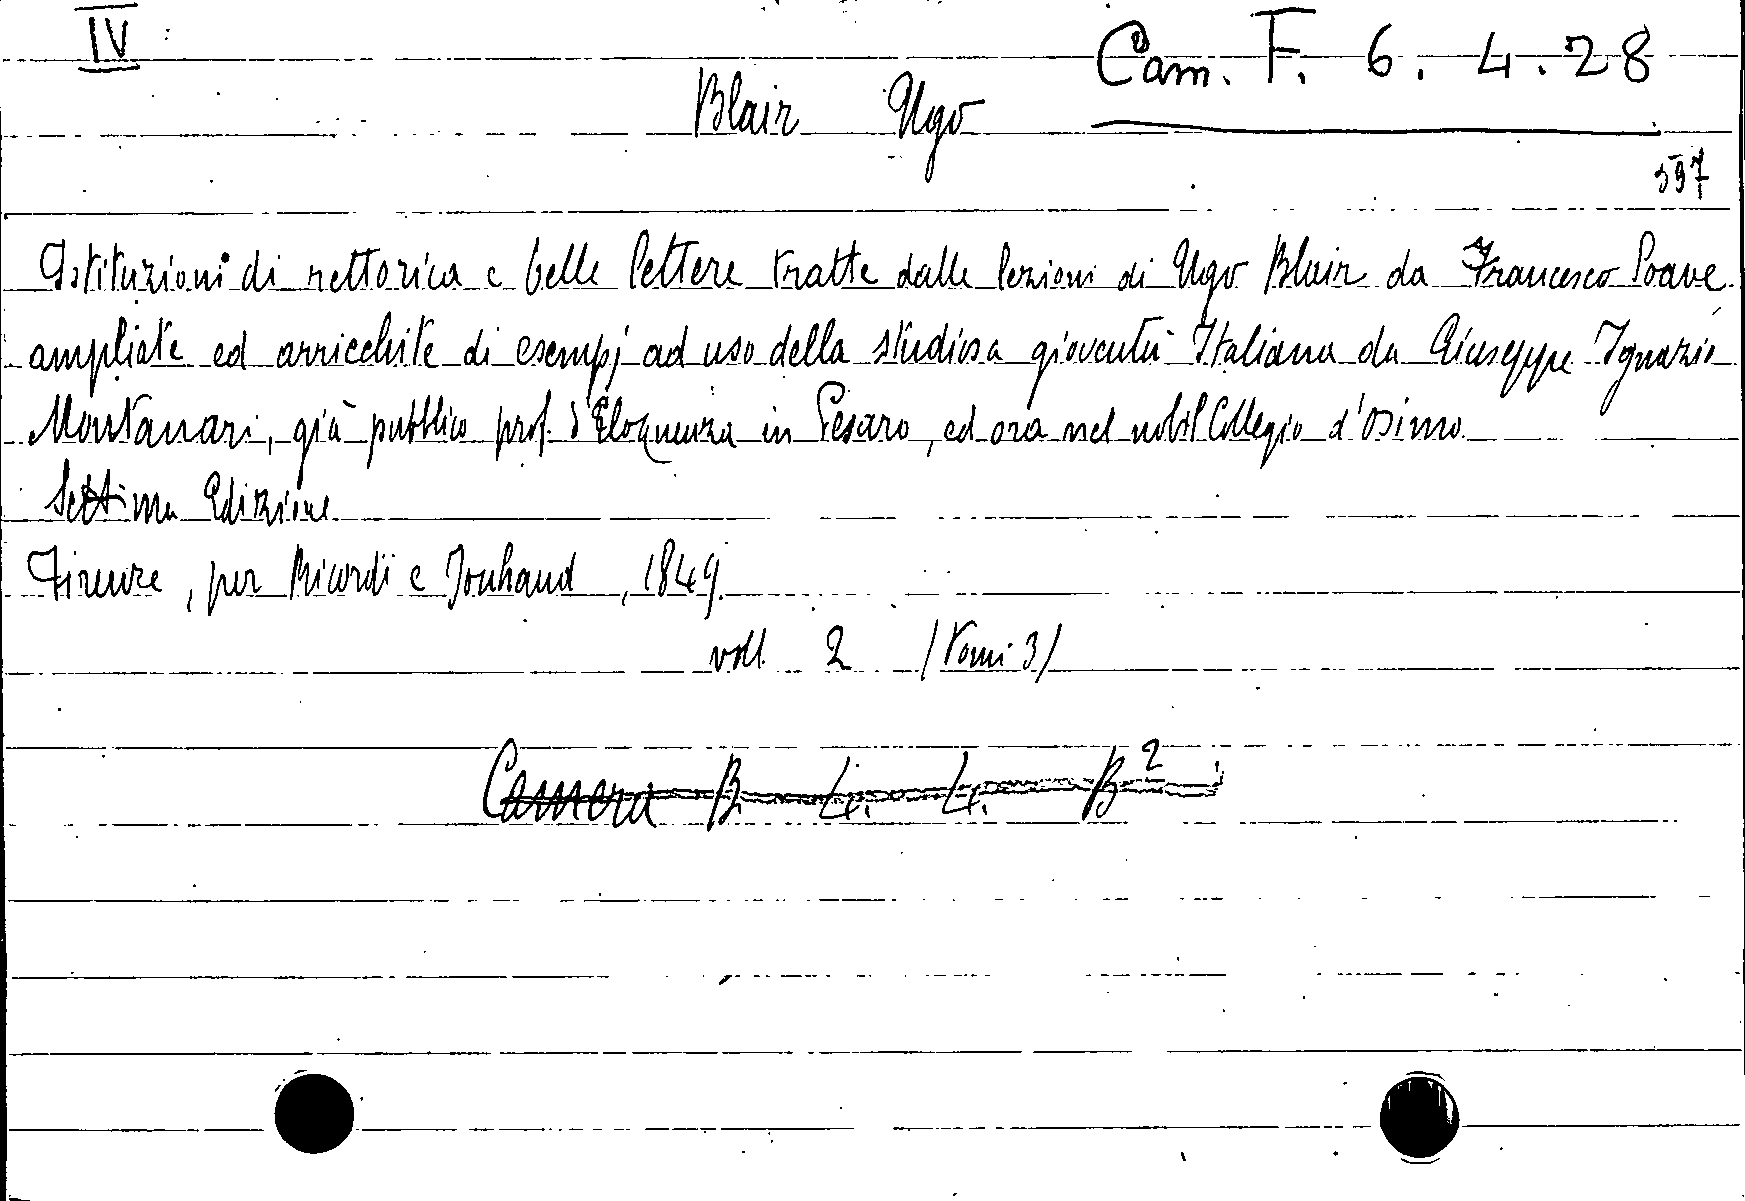 IV
Cam. F. 6. 4. 28
Blair Ugo
597
Istituzioni di rettorica e belle lettere tratte dalle lezioni di Ugo Blair da Francesco Soave
ampliate ed arricchite di esempj ad uso della studiosa gioventù Italiana da Giuseppe Ignazio
Montanari, già pubblico prof. d'Eloquenza in Pesaro, ed ora nel nobil Collegio d'Osimo
Settima Edizione
Firenze, per Ricordi e Jouhaud, 1849.
voll. 2 /tomi 3/
Camera B. 4. 4. B²